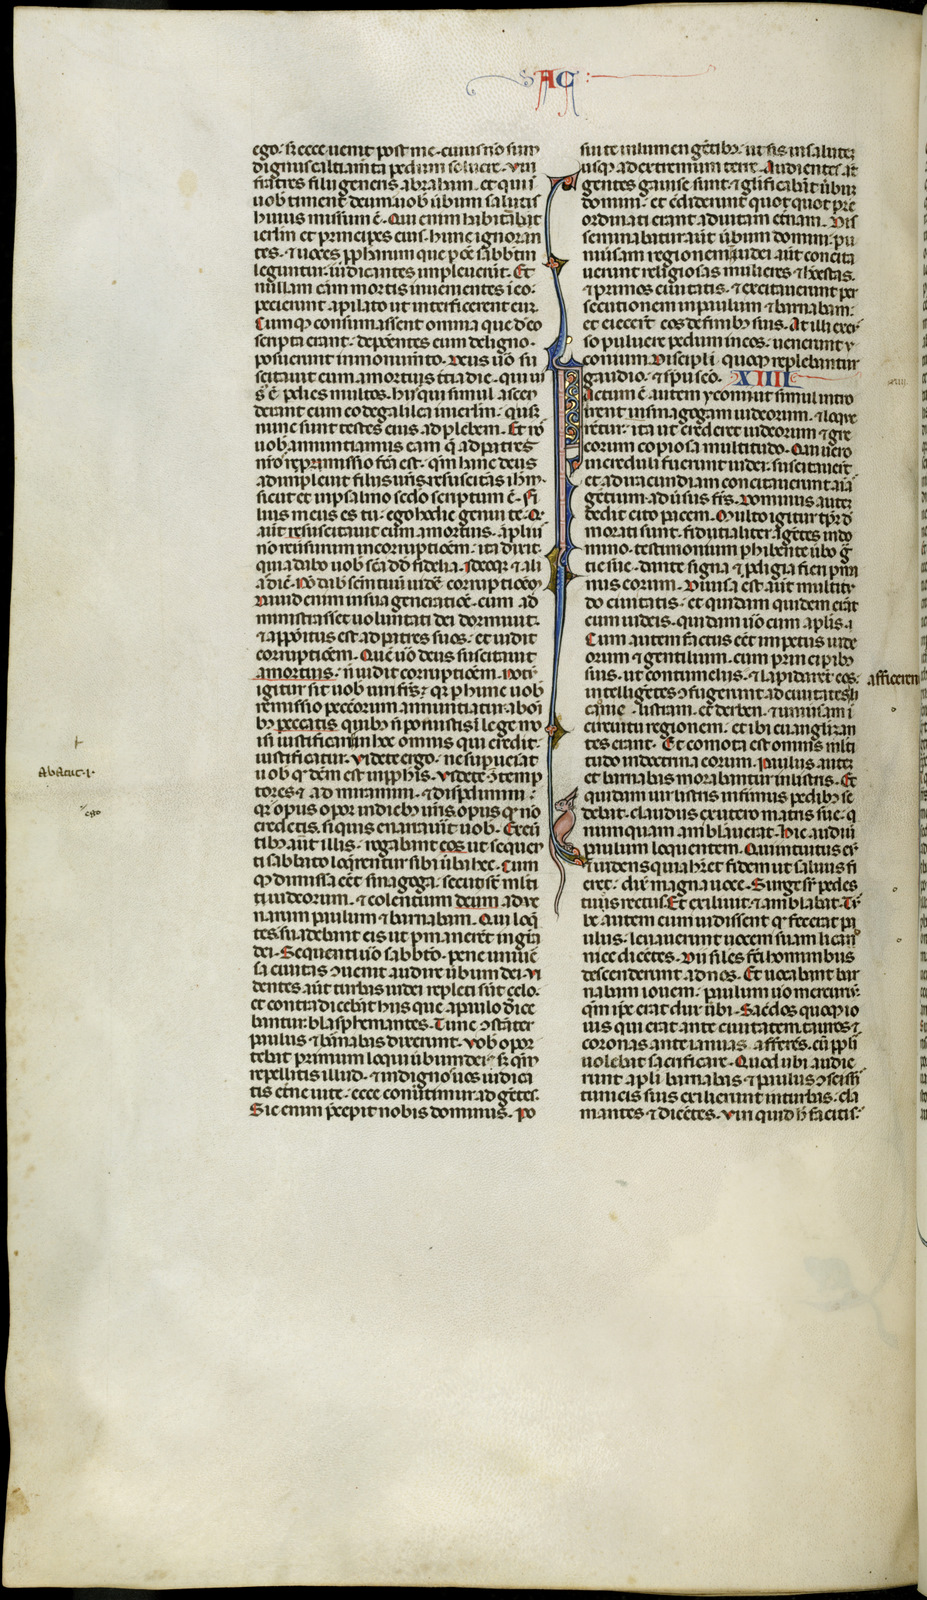 AC
ego· sꝫ ecce uenit post me· cuius nō sum
dignus calciam̄ta pedum soluere· Viri
fratres filii generis abraham· et qui ī
uob̄ timent deum uob̄ ūbum salutis
huius missum ē· Qui enim habitabāt
ierl̄m et principes eius· hunc ignoran
tes· ⁊ uoces ꝓpharum que ꝑ oē sabb̄tm
leguntur· iudicantes impleuer̄t· Et
nullam cām mortis inuenientes ī eo·
pecierunt a pilato ut interficerent eū.
Cumqꝫ consumassent omnia que d̄ eo
scripta erant· deponētes eum de ligno·
posuerunt in monum̄to· Deus ūo su
scitauit eum a mortuis t̄cia die· qui ui
sꝰ ē ꝑ dies multos· hiis qui simul ascen
derant cum eo de galilea in ierl̄m· qui usqꝫ
nunc sunt testes eius ad plebem· Et nos
uob̄ annunciamus eam q̄ ad patres
nr̄os repromissio fc̄a est· qm̄ hanc deus
adimpleuit filiis ur̄is resuscitās ih̄m·
sicut et in psalmo sc̄do scriptum ē· Fi
lius meus es tu· ego hodie genui te· Qꝫ
aūt resuscitauit eum a mortuis· āpliꝰ
nō reūsurum in corruptiōem· ita dixit·
quia dabo uob̄ sc̄a dd̄ fidelia· Ideoqꝫ ⁊ ali
a dīc· Nō dab̄ sc̄m tuū uidē corruptiōem·
Dauid enim in sua generatiōe· cum ad
ministrasset uoluntati dei dormiuit·
⁊ appōitus est ad patres suos· et uidit
corruptiōem· Quē ūo deus suscitauit
a mortuis· n̄ uidit corruptiōem· Notū
igitur sit uob̄ uiri fr̄s· qꝫ ꝑ hunc uob̄
remissio pecc̄orum annunciatur ab oī
bꝫ peccatis quibꝫ n̄ potuistis ī lege mo
isi iustificari· in hoc omnis qui credit·
iustificatur· Videte ergo· ne supueniat
uob̄ qd̄ dc̄m est in ꝓphis· Videte ꝯtemp
tores· ⁊ admiramini· ⁊ dispdimini·
qꝫ opus opor in diebꝫ ur̄is· opus qd̄ nō
credetis· si quis enarrauit uob̄· Exeū
tibꝫ aut̄ illis· rogabant eos ut sequen
ti sabbato loqrentur sibi ūba hec· Cum
qꝫ dimissa eēt sinagoga· secuti sūt ml̄ti
iudeorum· ⁊ colentium deum adue
narum paulum ⁊ barnabam· Qui loqn̄
tes suadebant eis ut ꝑmanerēt in gr̄a
dei· Sequenti ūo sabb̄to· pene uniūe
sa ciuitas ꝯuenit audire ūbum dei· Vi
dentes aūt turbas iudei repleti sūt celo·
et contradicebāt hiis que a paulo d̄ice
bantur· blasphemantes· Tunc ꝯstāter
paulus ⁊ barnabas dixerunt· Vob̄ opor
tebat primum loqui ūbum dei· sꝫ qm̄
repellitis illud· ⁊ indignos uos iudica
tis et̄ne uite· ecce conūtimur ad gētes·
Sic enim p̄cepit nobis dominus· Po
sui te in lumen gētibꝫ· ut sis in salutē
usqꝫ ad extremum terre· Audientes aūt
gentes gauise sunt· ⁊ gl̄ificabāt ūbum
domini· et c̄diderunt quot quot pre
ordinati erant ad uitam et̄nam· Dis
seminabatur aūt ūbum domini· ꝑ u
niūsam regionem· Iudei aūt concita
uerunt religiosas mulieres ⁊ honestas·
⁊ primos ciuitatis· ⁊ excitauerunt per
secutionem in paulum ⁊ barnabam·
et eiecerūt eos de finibꝫ suis· At illi excus
so puluere pedum in eos· uenerunt y
conium· Discipli quoqꝫ replebantur
gaudio· ⁊ spū sc̄o· XIIII
Factum ē autem yconii ut simul intro
irent in sinagogam iudeorum· ⁊ loqre
rētur· ita ut crederet iudeorum ⁊ gre
corum copiosa multitudo· Qui uero
increduli fuerunt iudei· suscitauerūt
et ad iracundiam concitauerunt aīas
gētium· adūsus fr̄s· Dominus autem
dedit cito pacem· Multo igitur tpr̄e d̄
morati sunt· fiducialiter agētes in do
mino· testimonium ꝑhibente ūbo gr̄
tie sue· dante signa ⁊ ꝓdigia fieri ꝑ ma
nus eorum· Diuisa est aūt multitu
do ciuitatis· et quidam quidem erāt
cum iudeis· quidam ūo cum aplis·
Cum autem factus eēt impetus iude
orum ⁊ gentilium· cum principibꝫ
suis· ut contumeliis· ⁊ lapidarēt eos· afficerent
intelligētes ꝯfugerunt ad ciuitates li
caonie· listram· et derben· ⁊ uniūsam ī
circuitu regionem· et ibi euangelizan
tes erant· Et comota est omnis ml̄ti
tudo in doctrina eorum· Paulus autem
et barnabas morabantur in listris· Et
quidam uir listris infirmus pedibꝫ se
debat· claudus ex utero matris sue· qui
numquam ambulauerat· Hic audiuit
paulum loquentem· Qui intuitus eum
⁊ uidens quia haberet fidem ut saluus fi
eret· dix̄ magna uoce· Surge sr̄ pedes
tuos rectus· Et exiliuit· ⁊ ambulabat· Tur
be autem cum uidissent qd̄ fecerat pa
ulus· leuauerunt uocem suam licao
nice dicētes· Dii siles fc̄i hominibus
descenderunt ad nos· Et uocabant bar
nabam iouem· paulum ūo mercuriū·
qm̄ ipe erat dux ūbi· Sacdos quoqꝫ io
uis qui erat ante ciuitatem tauros ⁊
coronas ante ianuas afferēs· cū ppl̄is
uolebat sacrificare· Quod ubi audie
runt apl̄i barnabas ⁊ paulus ꝯscissis
tunicis suis exilierunt in turbas· cla
mantes ⁊ dicētes· Viri quid h̄ facitis·
Abacuc·i·
ego